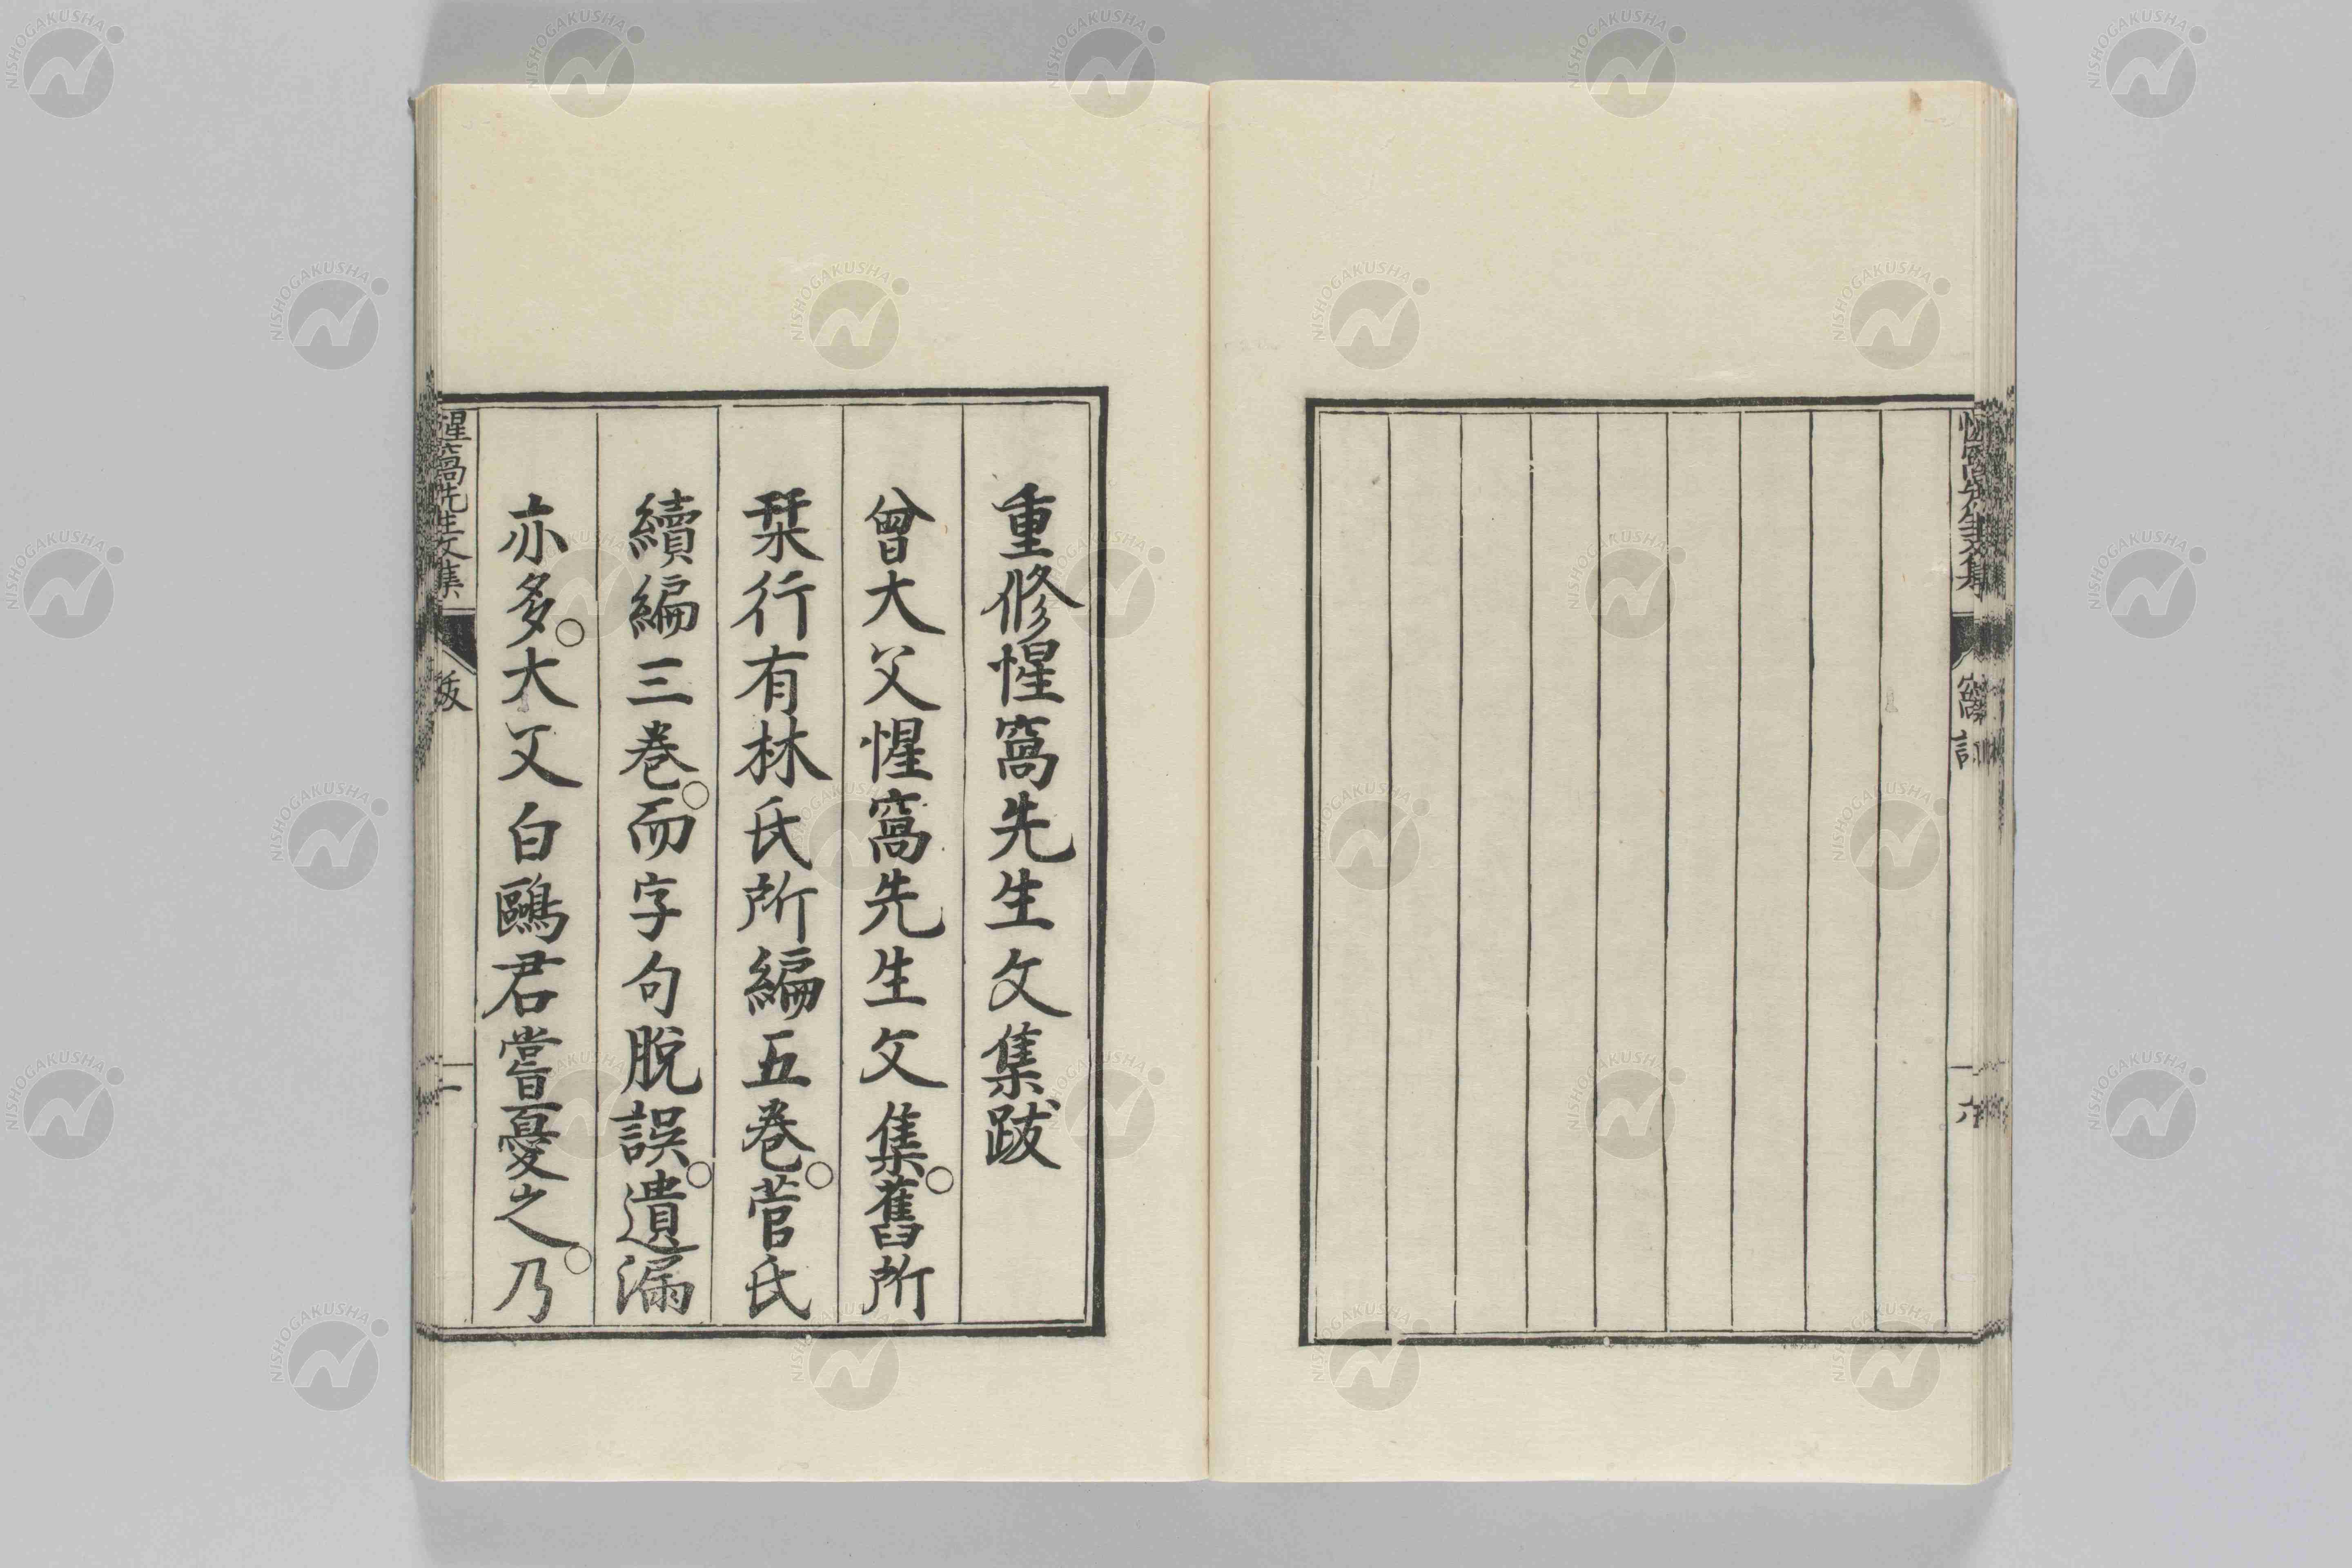 重修惺窩先生文集跋
曾大父惺窩先生文集。舊所
栞行有林氏所編五卷。菅氏
續編三卷。而字句脫誤。遺漏
亦多。大父白鷗君嘗憂之。乃
惺窩先生文集
跋
一
NISHOGAKUSHA